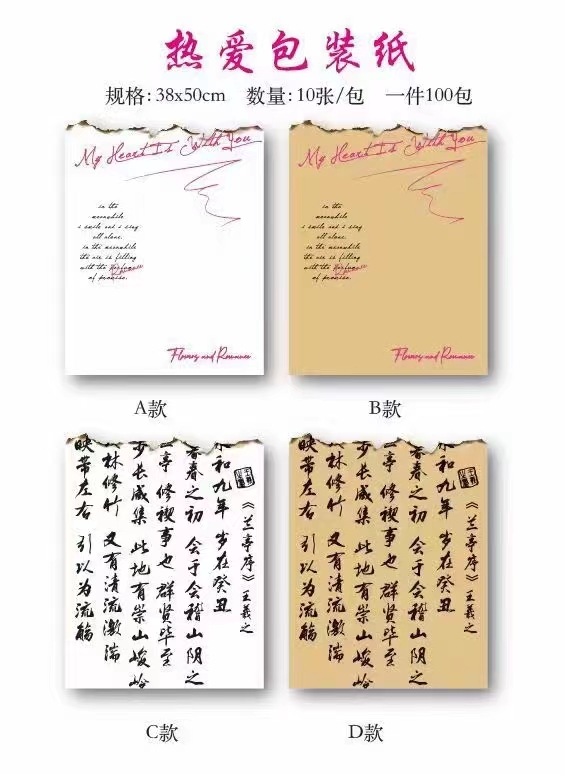 热爱包装纸
规格：38x50cm 数量：10张/包 一件100包
My Heart Is With You
in the
meanwhile
i smile and i sing
all alone.
in the meanwhile
the air is filling
with the Perfume
of promise.
Flowers and Romance
A款
My Heart Is With You
in the
meanwhile
i smile and i sing
all alone.
in the meanwhile
the air is filling
with the Perfume
of promise.
Flowers and Romance
B款
《兰亭序》王羲之
永和九年 岁在癸丑
暮春之初 会于会稽山阴之
兰亭 修禊事也 群贤毕至
少长咸集 此地有崇山峻岭
茂林修竹 又有清流激湍
映带左右 引以为流觞
C款
《兰亭序》王羲之
永和九年 岁在癸丑
暮春之初 会于会稽山阴之
兰亭 修禊事也 群贤毕至
少长咸集 此地有崇山峻岭
茂林修竹 又有清流激湍
映带左右 引以为流觞
D款